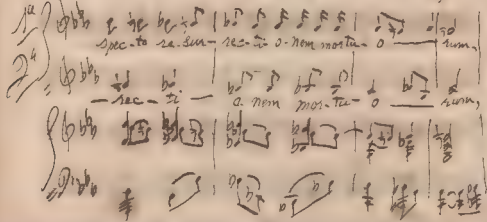 spec-to re-sur-rec-ti-o-nem mortu-o rum,
-rec-ti-o-nem mor-tu-o rum,